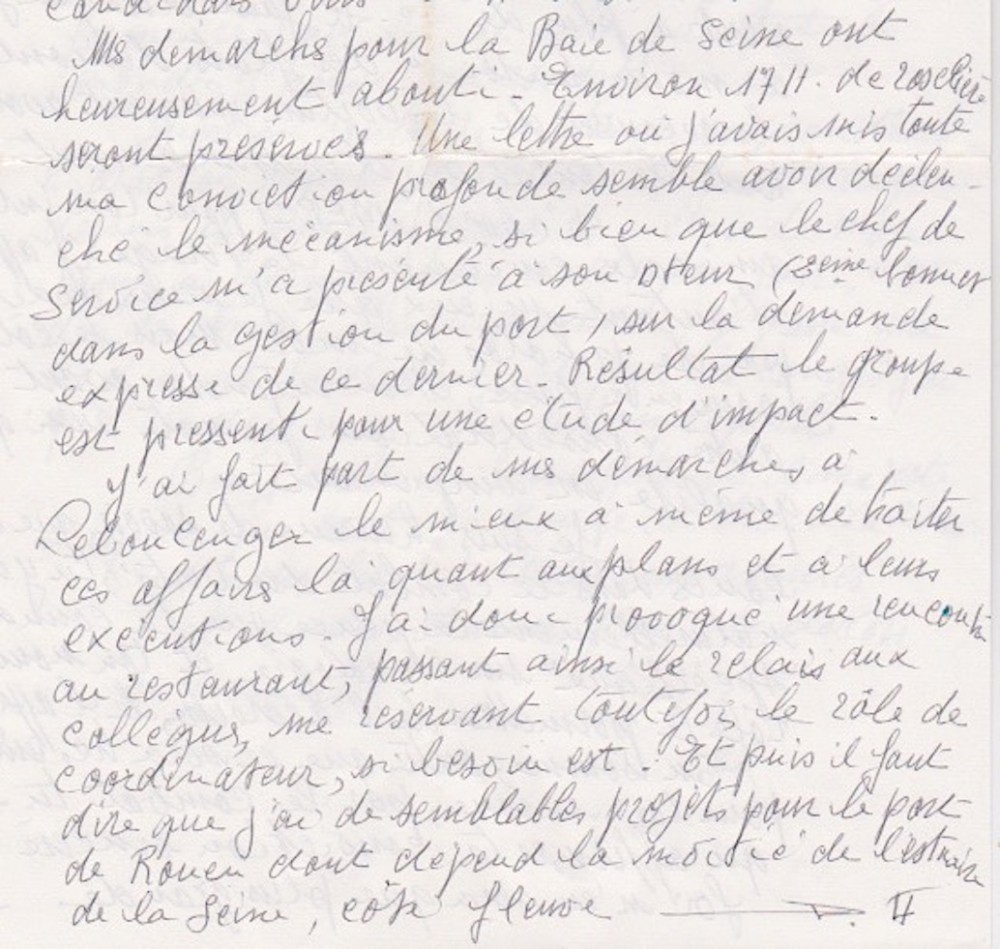 Mes demarches pour la Baie de Seine ont
heureusement abouti. Environ 17 H. de roselière
seront préservés. Une lettre où j'avais mis toute
ma conviction profonde semble avoir déclen-
ché le mécanisme, si bien que le chef de
Service m'a présenté à son Dteur (2eme bonnet
dans la gestion du port) sur la demande
expresse de ce dernier. Résultat le groupe
est pressenti pour une étude d'impact.
J'ai fait part de mes démarches à
le mieux à même de traiter
ces affaires là quant aux plans et à leurs
exécutions. J'ai donc provoqué une rencontre
au restaurant, passant ainsi le relais aux
collègues, me réservant toutefois le rôle de
coordinateur, si besoin est. Et puis il faut
dire que j'ai de semblables projets pour le port
de Rouen dont dépend la moitié de l'estuaire
de la Seine, côté fleuve → II